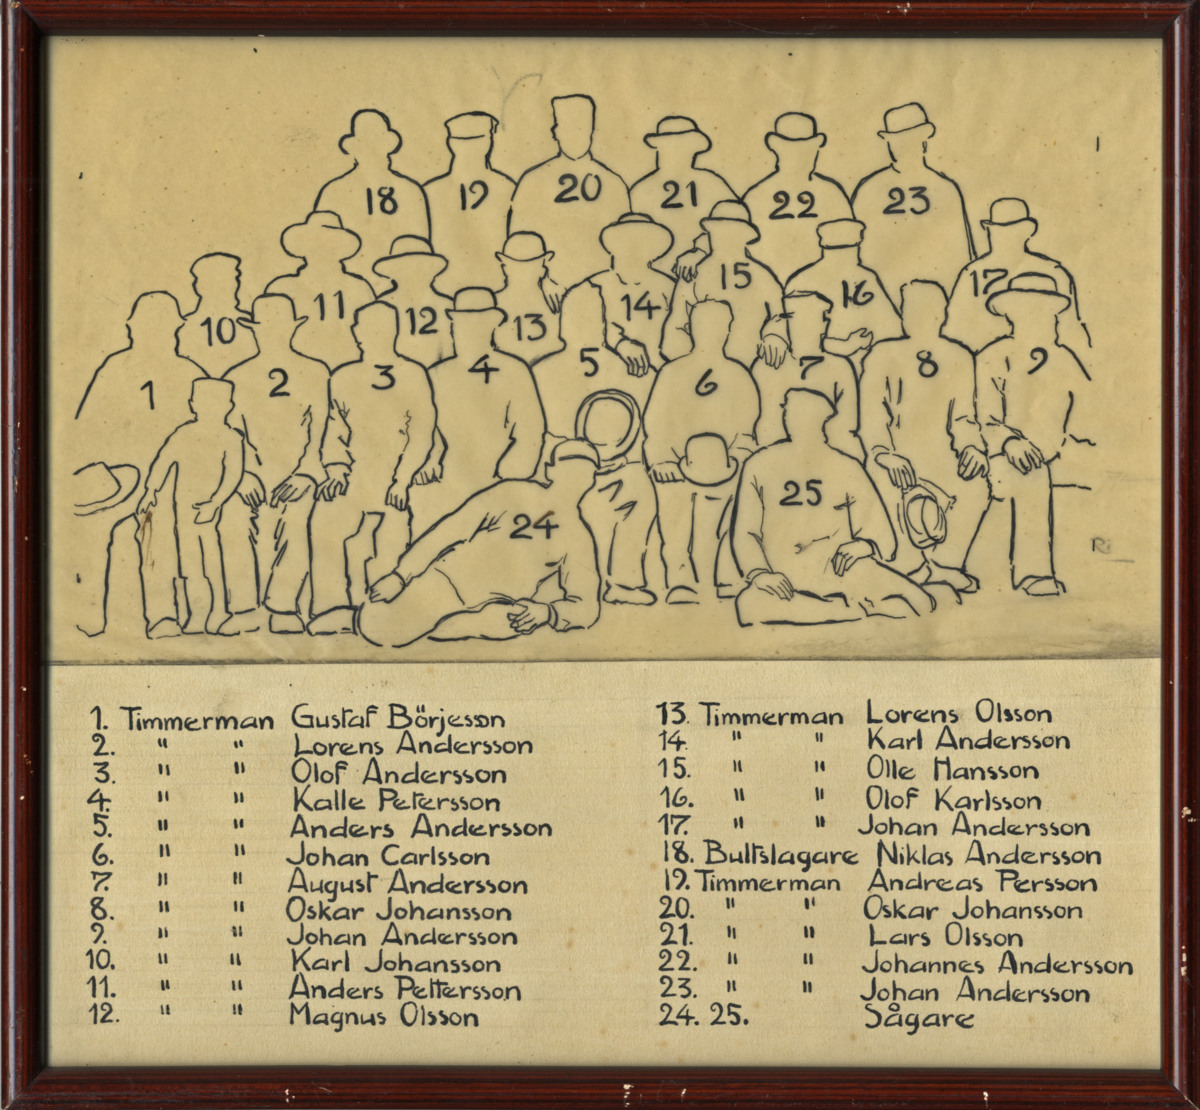 18 19 20 21 22 23
10 11 12 13 14 15 16 17
1 2 3 4 5 6 7 8 9
24 25
1. Timmerman Gustaf Börjesson
2. " " Lorens Andersson
3. " " Olof Andersson
4. " " Kalle Petersson
5. " " Anders Andersson
6. " " Johan Carlsson
7. " " August Andersson
8. " " Oskar Johansson
9. " " Johan Andersson
10. " " Karl Johansson
11. " " Anders Pettersson
12. " " Magnus Olsson
13. Timmerman Lorens Olsson
14. " " Karl Andersson
15. " " Olle Hansson
16. " " Olof Karlsson
17. " " Johan Andersson
18. Bultslagare Niklas Andersson
19. Timmerman Andreas Persson
20. " " Oskar Johansson
21. " " Lars Olsson
22. " " Johannes Andersson
23. " " Johan Andersson
24. 25. Sågare